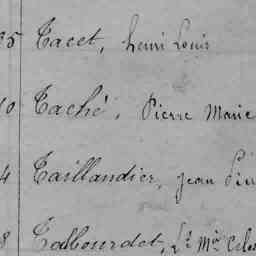 35 Tacet, henri Louis
10 Taché, Pierre Marie
4 Taillandier, jean Pier
8 Talbourdet, Lt Mie Celes